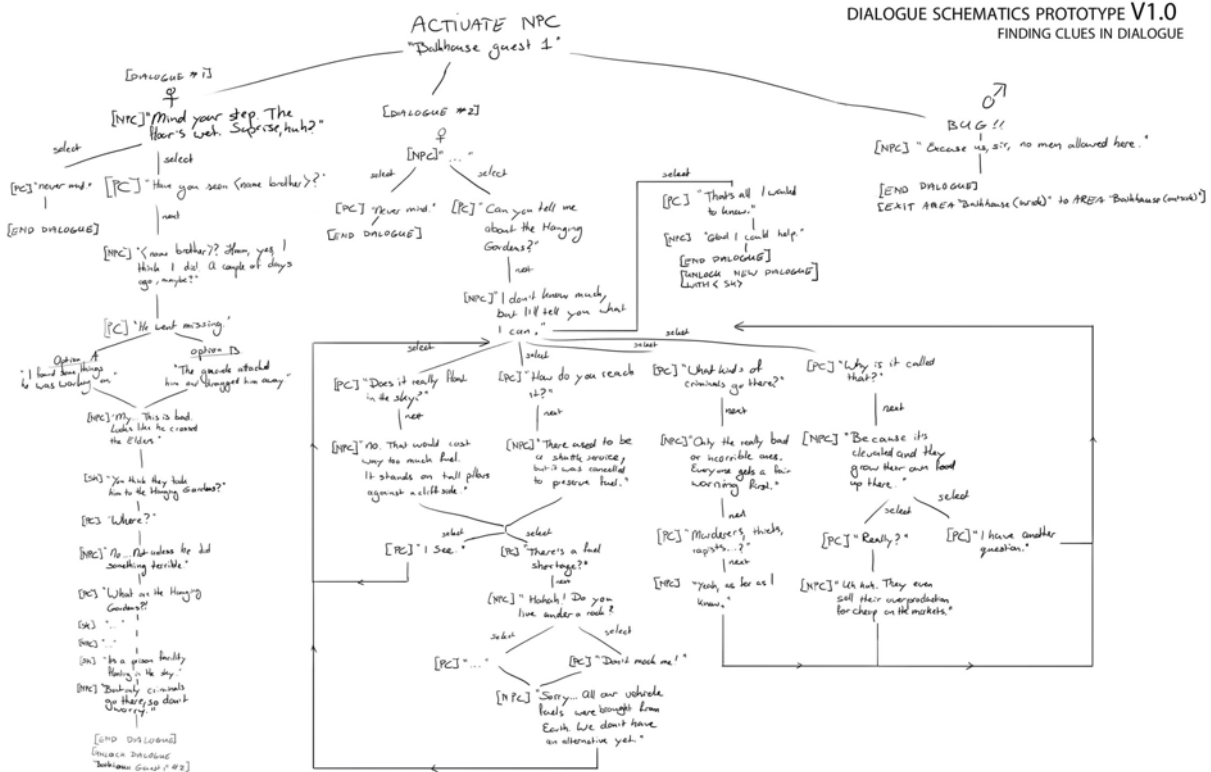 DIALOGUE SCHEMATICS PROTOTYPE V1.0
FINDING CLUES IN DIALOGUE
ACTIVATE NPC
"Bathhouse guest 1"
[DIALOGUE #1]
♀
[NPC] "Mind your step. The
floor's wet. Suprise, huh?"
select
select
[PC] "never mind."
[END DIALOGUE]
[PC] "Have you seen <name brother>?"
next
[NPC] "<name brother>? Hmm, yes I
think I did. A couple of days
ago, maybe?"
[PC] "He went missing."
Option A
"I found some things
he was working on"
option B
"The guards attacked
him and dragged him away"
[NPC] "My... This is bad.
Looks like he crossed
the Elders."
[SK] "You think they took
him to the Hanging Gardens?"
[PC] "Where?"
[NPC] "No... Not unless he did
something terrible."
[PC] "What are the Hanging
Gardens?"
[SK] "..."
[NPC] "..."
[SK] "Its a prison facility
floating in the sky."
[NPC] "But only criminals
go there, so don't
worry."
[END DIALOGUE]
[UNLOCK DIALOGUE
"Bathhouse Guest 1" #2]
[DIALOGUE #2]
♀
[NPC] "..."
select
select
[PC] "Never mind."
[END DIALOGUE]
[PC] "Can you tell me
about the Hanging
Gardens?"
next
[NPC] "I don't know much,
but I'll tell you what
I can."
select
[PC] "That's all I wanted
to know."
[NPC] "Glad I could help."
[END DIALOGUE]
[UNLOCK NEW DIALOGUE]
WITH <SK>
select
select
select
select
[PC] "Does it really float
in the sky?"
next
[NPC] "No. That would cost
way too much fuel.
It stands on tall pillars
against a cliff side."
[PC] "How do you reach
it?"
next
[NPC] "There used to be
a shuttle service,
but it was cancelled
to preserve fuel."
select
select
[PC] "I see."
[PC] "There's a fuel
shortage?"
next
[NPC] "Hahah! Do you
live under a rock?
select
select
[PC] "..."
[PC] "Don't mock me!"
[NPC] "Sorry... All our vehicle
fuels were brought from
Earth. We don't have
an alternative yet."
[PC] "What kinds of
criminals go there?"
next
[NPC] "Only the really bad
or horrible ones.
Everyone gets a fair
warning first."
next
[PC] "Murderers, thieves,
rapists...?"
next
[NPC] "Yeah, as far as I
know."
[PC] "Why is it called
that?"
next
[NPC] "Because it's
elevated and they
grow their own food
up there."
select
select
[PC] "Really?"
[PC] "I have another
question."
[NPC] "Uh huh. They even
sell their overproduction
for cheap on the markets."
♂
BUG!!
[NPC] "Excuse us, sir, no men allowed here."
[END DIALOGUE]
[EXIT AREA "Bathhouse (inside)" to AREA "Bathhouse (outside)"]